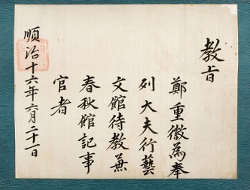 教旨
鄭重徽為奉
列大夫行藝
文館待教兼
春秋館記事
官者
順治十六年六月二十一日